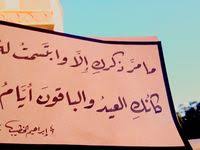 ما مرّ ذكركِ إلّا وابتسمتُ له
كأنكِ العيدُ والباقونَ أيّامُ